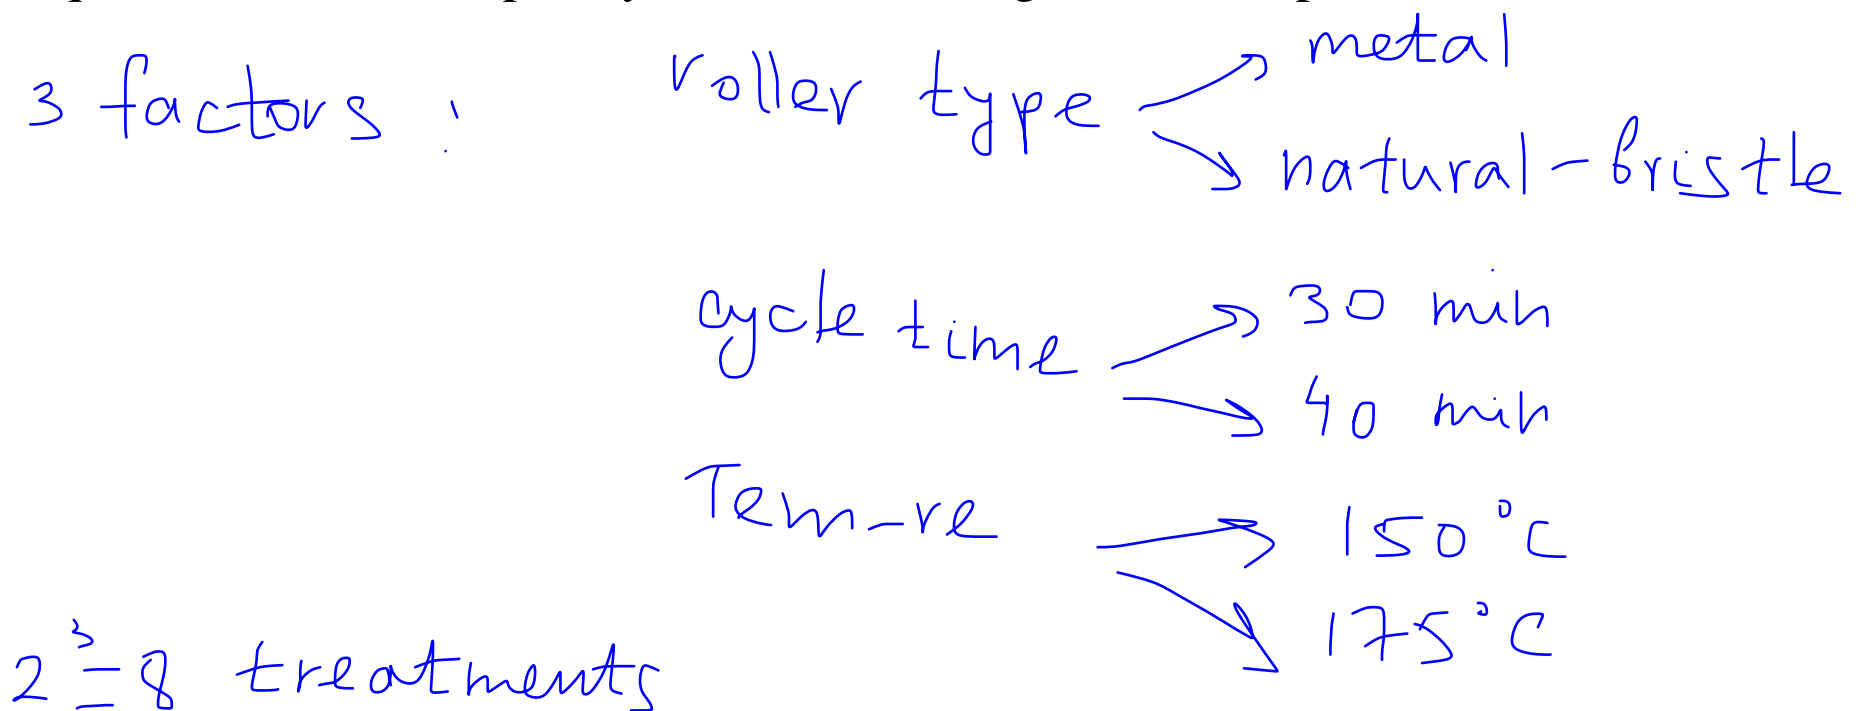 3 factors : roller type metal
natural-bristle
cycle time 30 min
40 min
Tem-re 150°C
175°C
2³=8 treatments